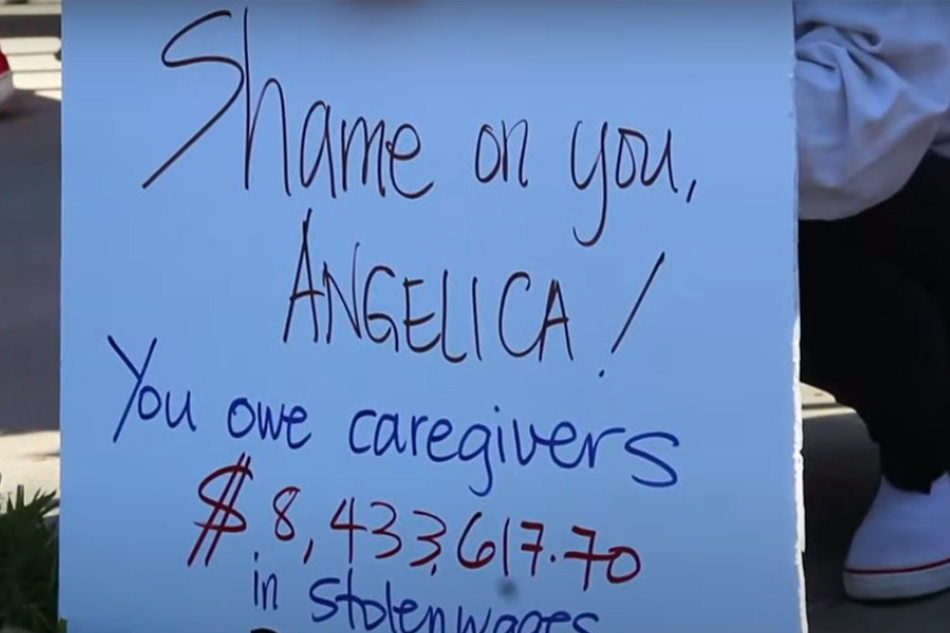 Shame on you,
ANGELICA!
You owe caregivers
$.8,433,617.70
in stolen wages